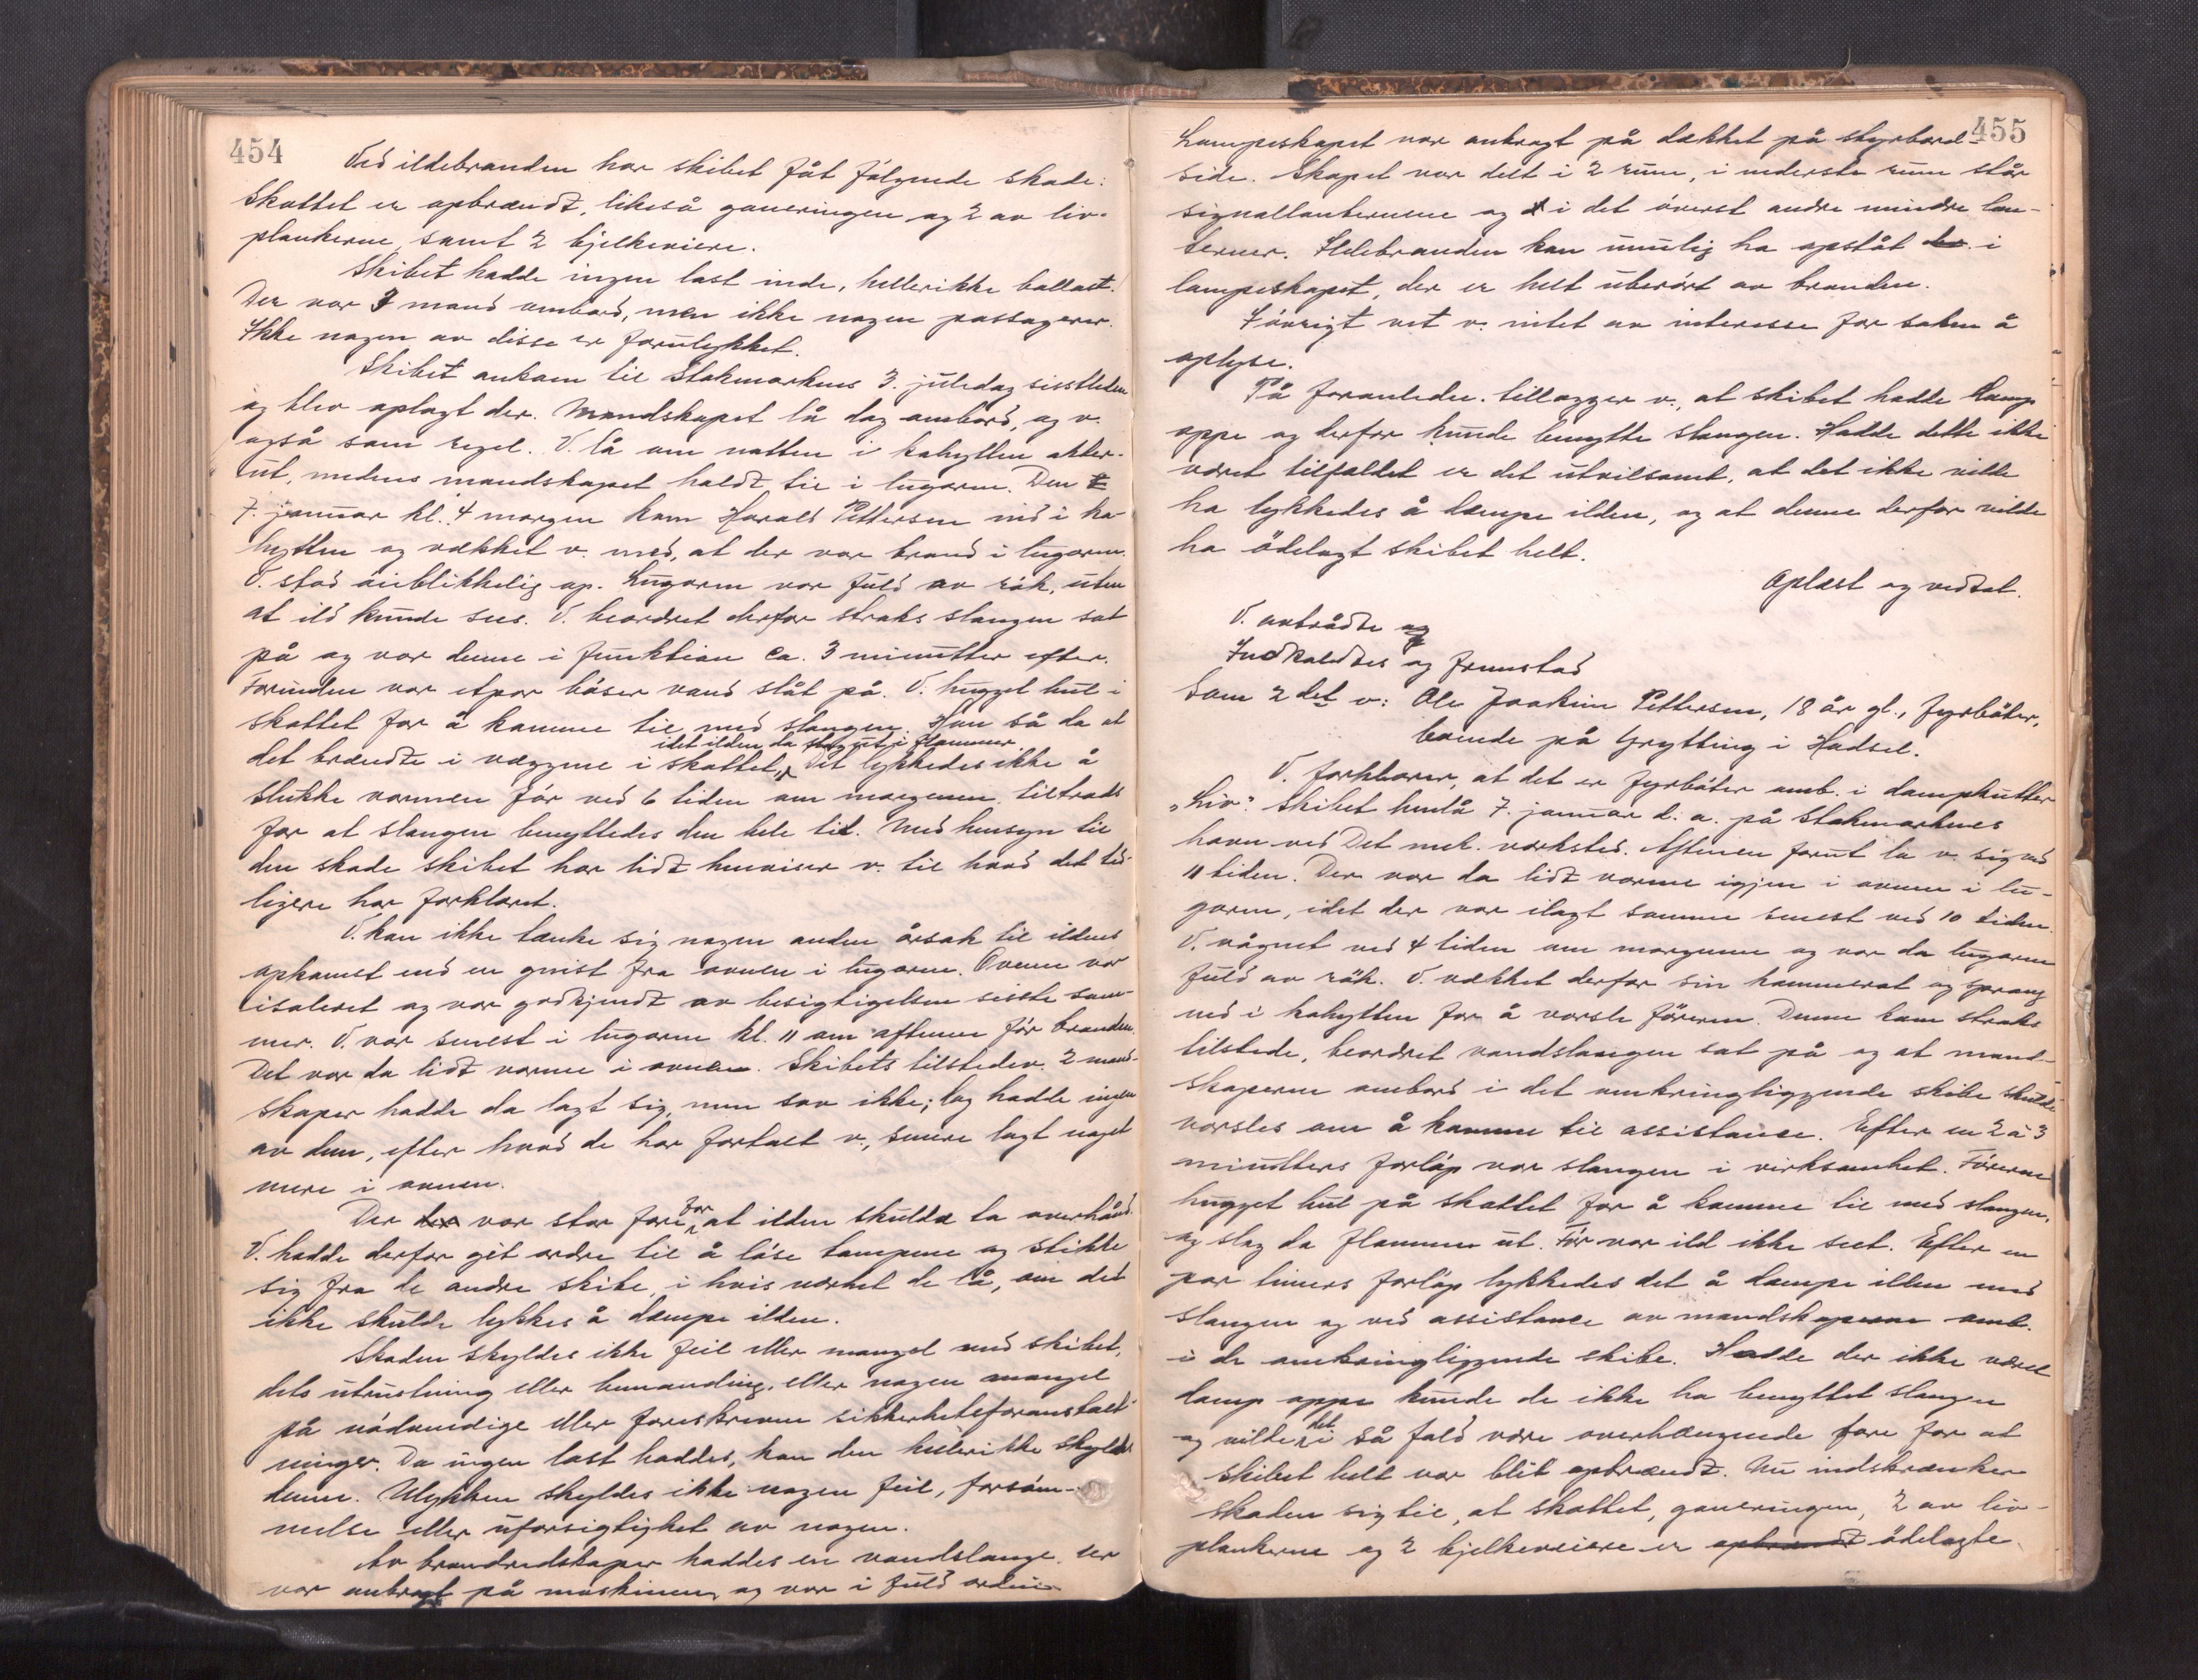 454
Ved ildebranden har skibet fåt følgende skade:
Skottet er opbrændt, likeså garneringen og 2 av liv-
plankerne, samt 2 bjelkeviere.
Skibet hadde ingen last inde, hellerikke ballast.
Der var 7 mand ombord, men ikke nogen passagerer.
Ikke nogen av disse er forulykket.
Skibet ankom til Stokmarknes 3. juledag sisstleden
og blev oplagt der. Mandskapet lå dog ombord, og v.
også som regel. V. lå om natten i kahytten akter-
ut, medens mandskapet holdt til i lugaren. Den
7. januar kl. 4 morgen kom Harald Pettersen ned i ka-
hytten og vækket v. med, at der var brand i lugaren.
V. stod øieblikkelig op. Lugaren var fuld av røk, uten
at ild kunde sees. V. beordret derfor straks slangen sat
på og var denne i funktion ca. 3 minutter efter.
Forinden var etpar bøser vand slåt på. V. hugget hul i
skottet for å komme til med slangen. Han så da at
idet ilden da slog ut i flammer.
det brændte i væggene i skottet, Det lykkedes ikke å
slukke varmen før ved 6 tiden om morgenen tiltrods
for at slangen benyttedes den hele tid. Med hensyn til
den skade skibet har lidt henviser v. til hvad det tid-
ligere har forklaret.
V. kan ikke tænke sig nogen anden årsak til ildens
opkomst end en gnist fra ovnen i lugaren. Ovnen var
isoleret og var godkjendt av besigtigelsen sisste som-
mer. V. var senest i lugaren kl. 11 om aftenen før branden.
Det var da lidt varme i ovnen. Skibets tilstedev. 2 mand-
skaper hadde da lagt sig, men sov ikke; log hadde ingen
av dem, efter hvad de har fortalt v., senere lagt noget
mere i ovnen.
Der der var stor fare for at ilden skulde ta overhånd.
V. hadde derfor git ordre til å løse tampene og stikke
sig fra de andre skibe, i hvis nærhet de lå, om det
ikke skulde lykkes å dæmpe ilden.
Skaden skyldes ikke feil eller mangel ved skibet,
dets utrustning eller bemanding, eller nogen mangel
på nødvendige eller foreskrevne sikkerhetsforanstalt-
ninger. Da ingen last haddes, kan den hellerikke skyldes
denne. Ulykken skyldes ikke nogen feil, forsøm-
melse eller uforsigtighet av nogen.
Av brandredskaper haddes en vandslange, der
var anbragt på maskinen og var i fuld orden
455
Lampeskapet var anbragt på dækket på styrbord-
side. Skapet var delt i 2 rum, i nederste rum står
signallanternene og i det øverst andre mindre lan-
terner. Ildebranden kan umulig ha opståt i
lampeskapet, der er helt uberørt av branden.
Iøvrigt vet v. intet av interesse for saken å
oplyse.
På foranledn. tillægger v., at skibet hadde damp
oppe og derfor kunde benytte slangen. Hadde dette ikke
været tilfældet er det utvilsomt, at det ikke vilde
ha lykkedes å dæmpe ilden, og at denne derfor vilde
ha ødelagt skibet helt.
Oplæst og vedtat.
V. avtrådte og
Indkaldtes og fremstod
Som 2 det v: Ole Joakim Pettersen, 18 år gl., fyrbøter,
boende på Grytting i Hadsel.
V. forklarer, at det er fyrbøter omb. i dampkutter
"Liv". Skibet henlå 7. januar d. a. på Stokmarknes
havn ved Det mek. værksted. Aftenen forut la v. sig ved
11 tiden. Der var da lidt varme igjen i ovnen i lu-
garen, idet der var ilagt samme senest ved 10 tiden.
V. vågnet ved 4 tiden om morgenen og var da lugaren
fuld av røk. V. vækket derfor sin kammerat og sprang
ned i kahytten for å varsle føreren. Denne kom straks
tilstede, beordret vandslangen sat på og at mand-
skaperne ombord i det omkringliggende skibe skulde
varsles om å komme til assistance. Efter en 2 à 3
minutters forløp var slangen i virksomhet. Føreren
hugget hul på skottet for å komme til med slangen,
og slog da flammen ut. Før var ild ikke seet. Efter en
par timers forløp lykkedes det å dæmpe ilden med
slangen og ved assistance av mandskaperne omb.
i de omkringliggende skibe. Hadde der ikke været
damp oppe kunde de ikke ha benyttet slangen
og vilde det i så fald være overhængende fare for at
skibet helt var blit opbrændt. Nu indskrænker
skaden sig til, at skottet, garneringen, 2 av liv-
plankerne og 2 bjelkeveiere er opbrændt ødelagte.